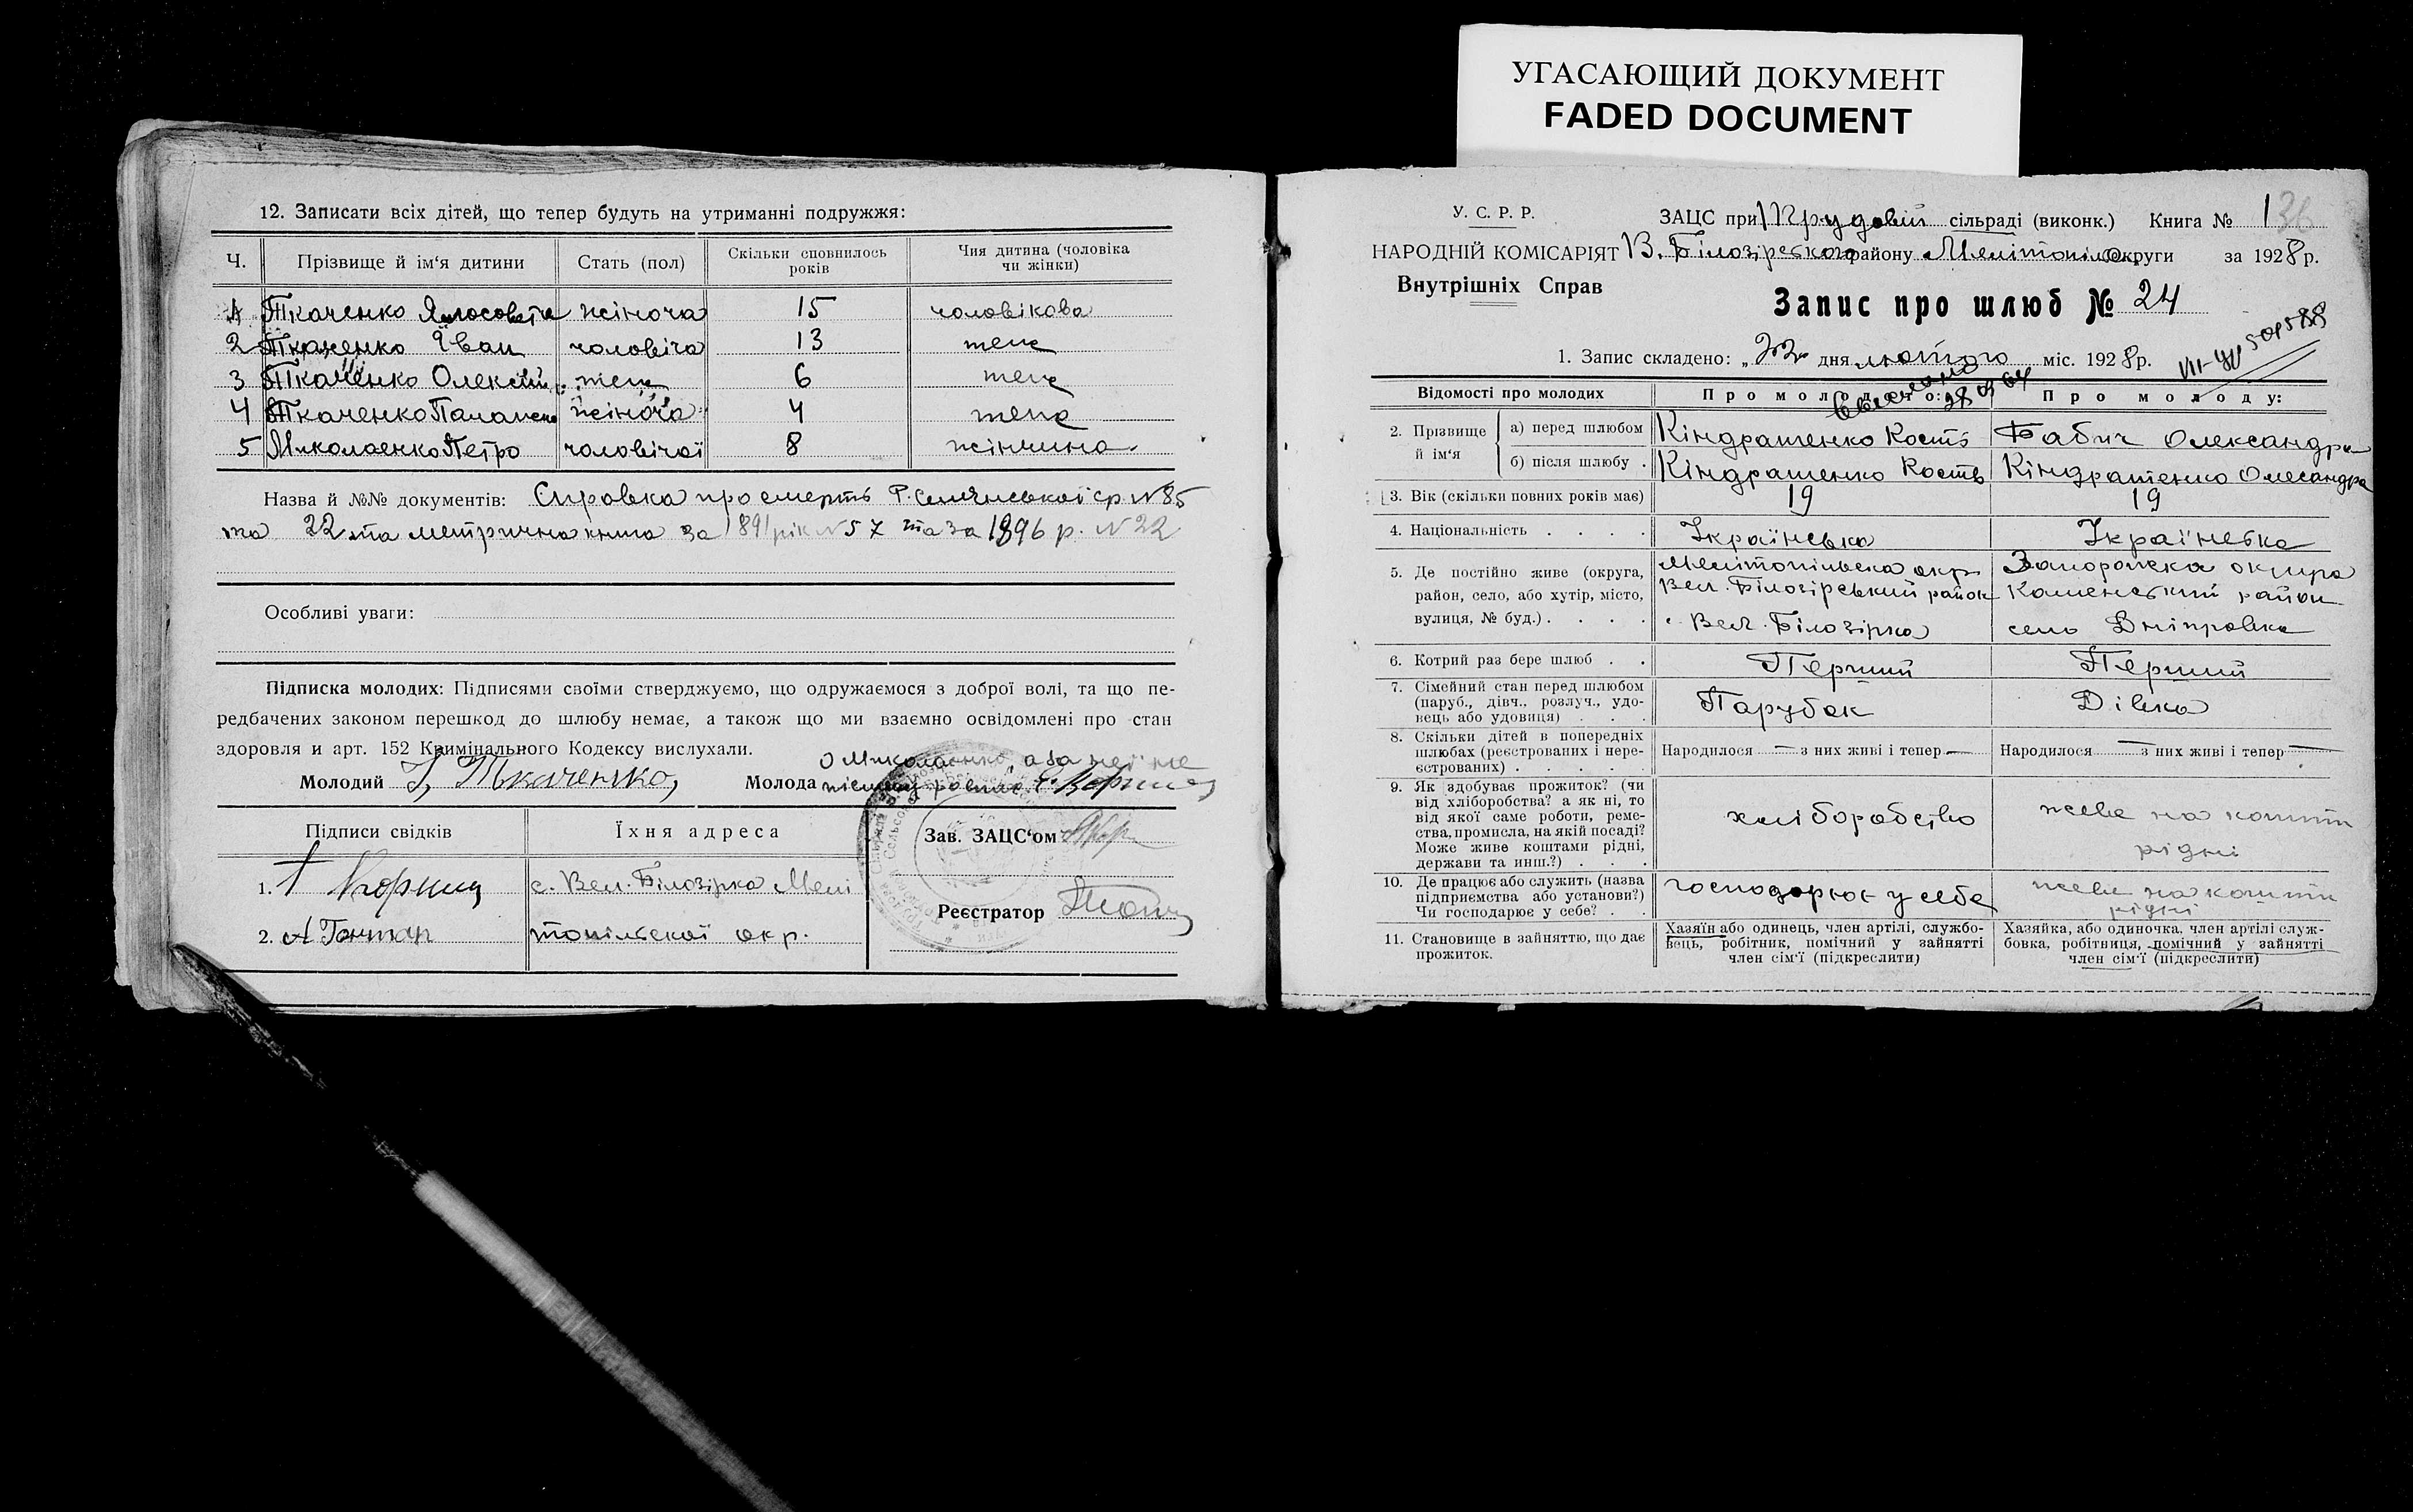 УГАСАЮЩИЙ ДОКУМЕНТ
FADED DOCUMENT
12. Записати всіх дітей, що тепер будуть на утриманні подружжя:
Ч. Прізвище й ім‘я дитини Стать (пол) Скільки сповнилось років Чия дитина (чоловіка чи жінки)
1 Ткаченко жіноча 15 чоловікова
2 Ткаченко Іван чоловіча 13 теж
3 Ткаченко Олексій теж 6 теж
4 Ткаченко жіноча 4 теж
5 Миколаенко Петро чоловічої 8 жінчина
Назва й №№ документів: Справка про смерть ср. № 85
та 22 та метрична книга за 1891 рік № 57 та за 1896 р. № 22
Особливі уваги:
Підписка молодих: Підписями своїми стверджуємо, що одружаємося з доброї волі, та що пе-
редбачених законом перешкод до шлюбу немає, а також що ми взаємно освідомлені про стан
здоровля и арт. 152 Кримінального Кодексу вислухали.
О Миколаенко, а за неї не
Молодий Ткаченко Молода
Підписи свідків Їхня адреса Зав. ЗАЦС‘ом
1. с. Вел. Білозірка Мелі
Реєстратор
2. А Гонтар топільскої окр.
У. С. Р. Р. ЗАЦС при сільраді (виконк.) Книга № 1 36
НАРОДНІЙ КОМІСАРІЯТ В. Білозірского району Мелітопільс округи за 1928 р.
Внутрішніх Справ
Запис про шлюб № 24
1. Запис складено: „22“ дня лютого міс. 1928 р.
VII-
Відомості про молодих Про молодого: Про молоду:
2. Прізвище й ім‘я а) перед шлюбом Кіндратенко Кость Бабич Олександра
б) після шлюбу Кіндратенко Кость Кіндратенко Олександра
3. Вік (скільки повних років має) 19 19
4. Національність Українська Українська
5. Де постійно живе (округа, Мелітопільска окр Запорожка округа
район, село, або хутір, місто, Вел. Білозірський район Каменський район
вулиця, № буд.) с. Вел. Білозірка село Дніпровка
6. Котрий раз бере шлюб Перший Перший
7. Сімейний стан перед шлюбом
(паруб., дівч., розлуч., удо-
вець або удовиця) Парубок Дівка
8. Скільки дітей в попередніх
шлюбах (реєстрованих і нере-
єстрованих) Народилося — з них живі і тепер — Народилося — з них живі і тепер —
9. Як здобуває прожиток? (чи
від хліборобства? а як ні, то
від якої саме роботи, реме-
ства, промисла, на якій посаді?
Може живе коштами рідні,
держави та инш.?) хліборобство живе на кошти
рідні
10. Де працює або служить (назва
підприємства або установи?)
Чи господарює у себе? господарює у себе живе на кошти
рідні
11. Становище в зайняттю, що дає
прожиток.
Хазяїн або одинець, член артілі, службо-
вець, робітник, помічний у зайнятті
член сім‘ї (підкреслити)
Хазяйка, або одиночка, член артілі служ-
бовка, робітниця, помічний у зайнятті
член сім‘ї (підкреслити)